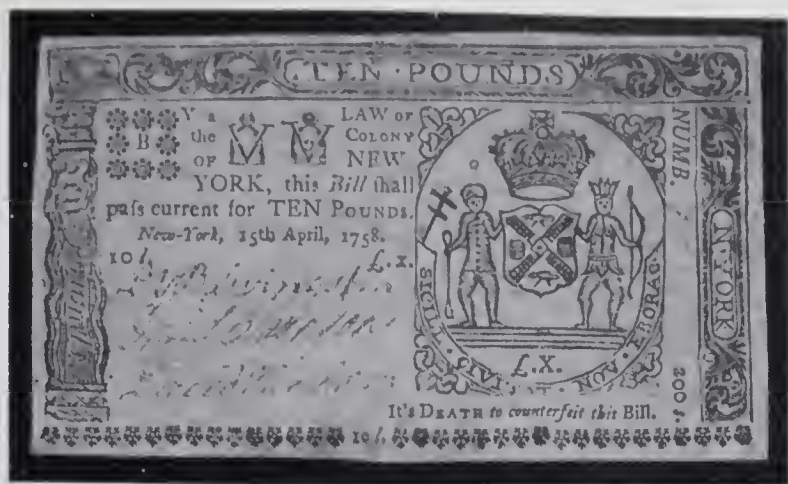 TEN · POUNDS
BY a LAW OF
the COLONY
OF NEW
YORK, this Bill ſhall
paſs current for TEN POUNDS.
New-York, 15th April, 1758.
10 l. £.X.
NUMB.
N·YORK
SIGILL · CIVITAT · NOV · EBORAC
£.X.
200 s.
It's DEATH to counterfeit this Bill.
10 l.